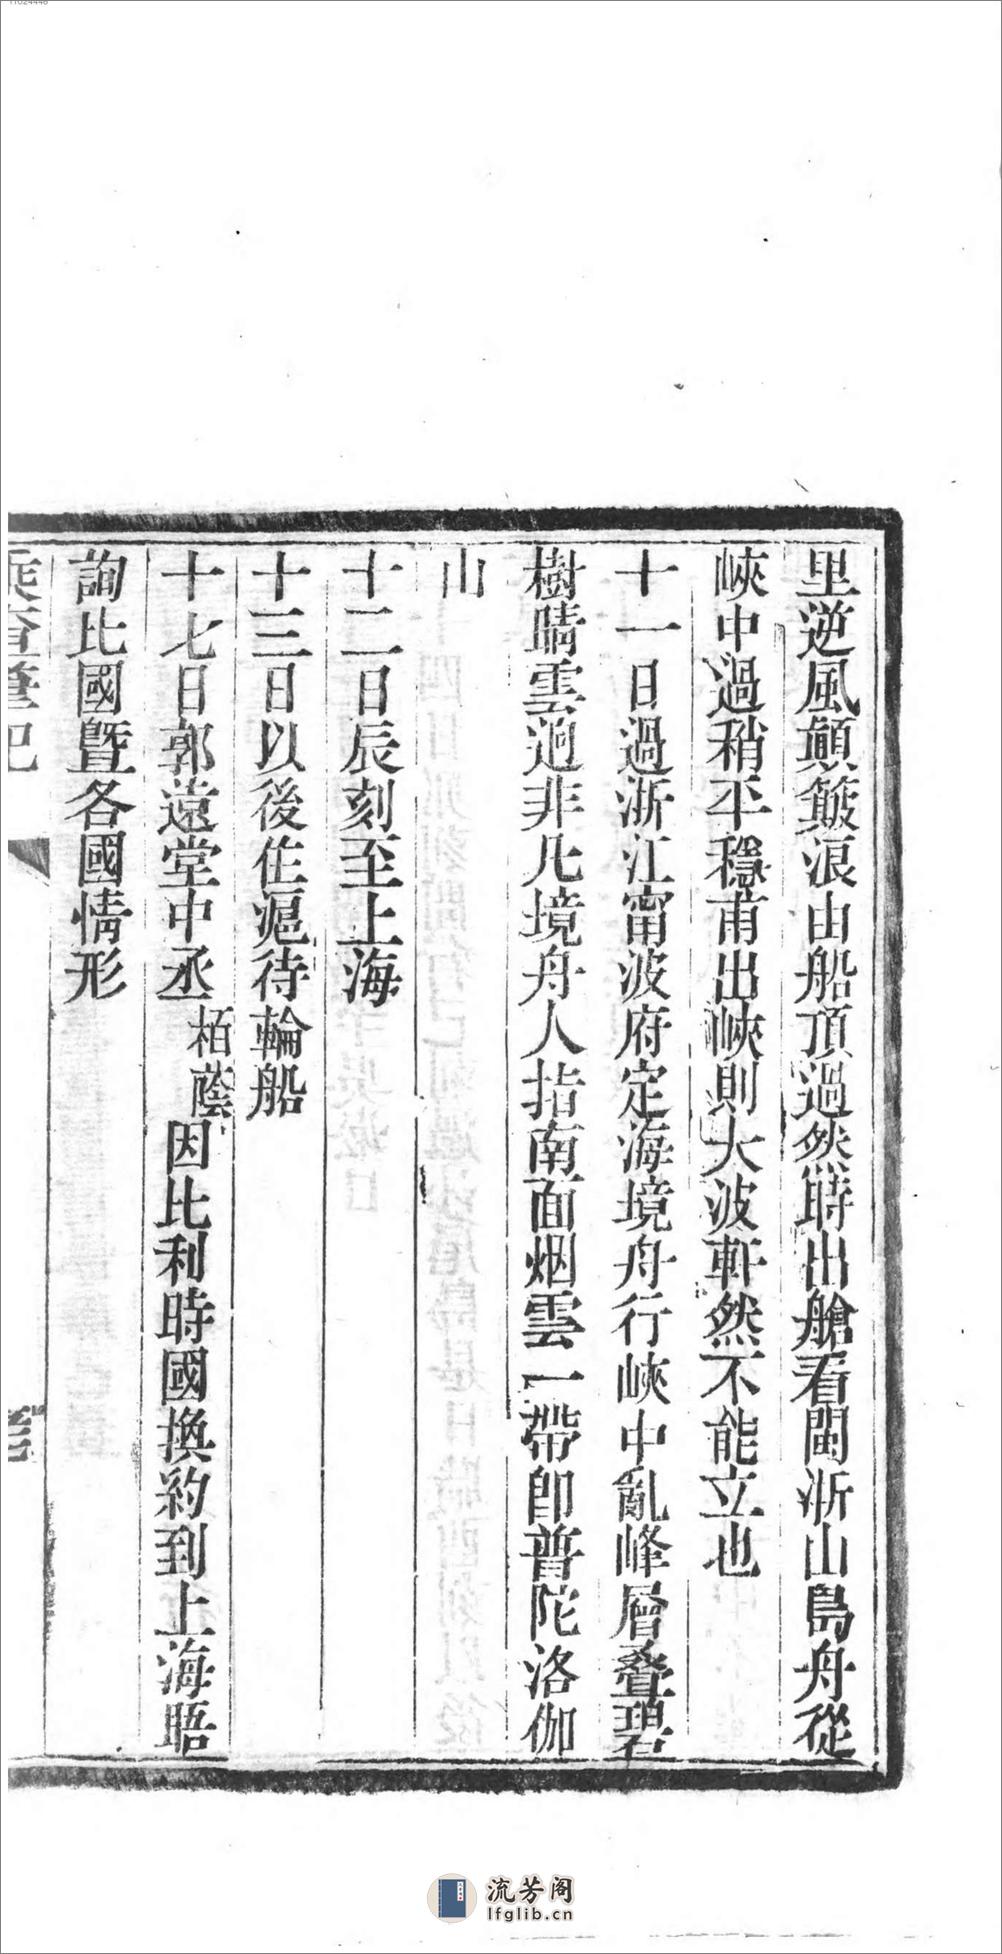 里逆風顛簸浪由船頂過然時出艙看閩浙山島舟從
峽中過稍平穩甫出峽則大波軒然不能立也
十一日過浙江甯波府定海境舟行峽中亂峰層疊碧
樹晴雲迥非凡境舟人指南面烟雲一帶卽普陀洛伽
山
十二日辰刻至上海
十三日以後住滬待輪船
十七日郭遠堂中丞柏蔭因比利時國換約到上海晤
詢比國曁各國情形
乘查筆記
流芳阁
lfglib.cn
11024446